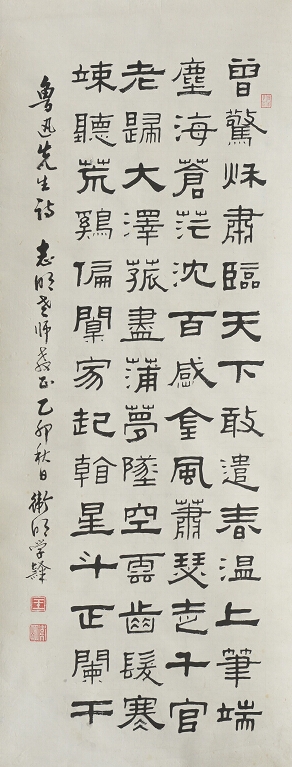 曾驚秋肅臨天下敢遣春溫上筆端
塵海蒼茫沈百感金風蕭瑟走千官
老歸大澤菰盡蒲夢墜空雲齒髮寒
竦聽荒鷄偏闃寂起看星斗正闌干
魯迅先生詩 志明老師教正 乙卯秋日 衛明学隸